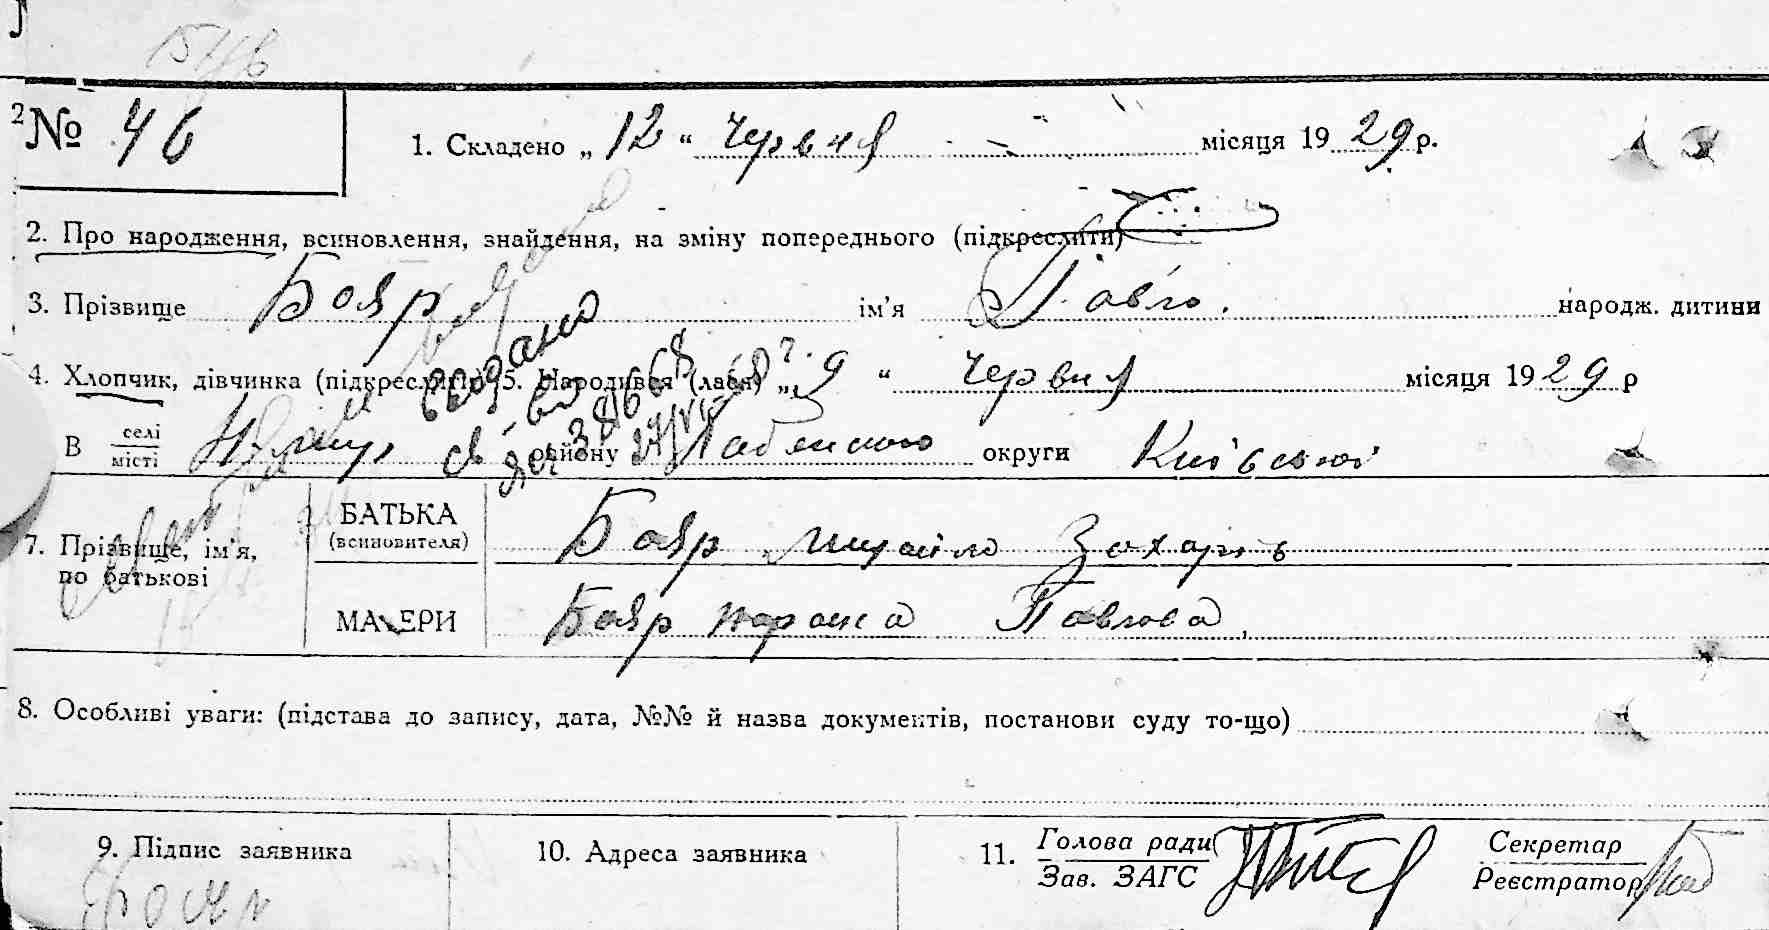 № 46
1. Складено „ 12 “ Червня місяця 1929 р.
2. Про народження, всиновлення, знайдення, на зміну попереднього (підкреслити)
3. Прізвище Бояр ім’я Павло. народж. дитини
4. Хлопчик, дівчинка (підкреслити) 5. Народився (лась) „ 9 “ Червня місяця 1929 р
В селі місті району округи Київської
7. Прізвище, ім’я, по батькові
БАТЬКА (всиновителя) Бояр Михайло
МАТЕРИ Бояр Павлова
8. Особливі уваги: (підстава до запису, дата, №№ й назва документів, постанови суду то-що)
9. Підпис заявника
10. Адреса заявника
11. Голова ради Зав. ЗАГС
Секретар Реєстратор